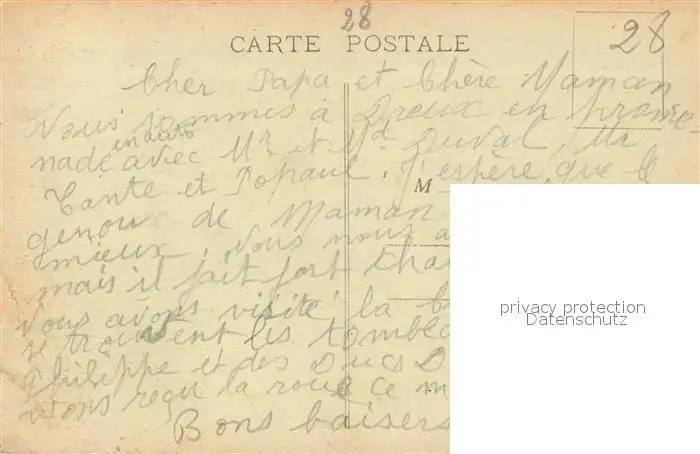 28
28
CARTE POSTALE
Cher Papa et Chère Maman
Nous sommes à Dreux en prome
en auto
nade avec Mr et Md Duval, Ma
Tante et Popaul. J'espère que le
M
genou de Maman
mieux. Nous nous a
mais il fait fort chau
Nous avons visité la
se trouvent les tombea
Philippe et des Ducs D
avons reçu la roue ce m
Bons baisers
privacy protection
Datenschutz